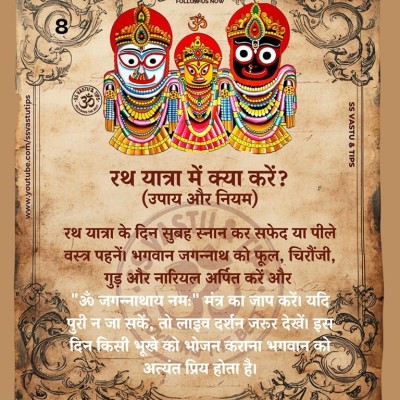 FOLLOW US NOW
8
ॐ
www.youtube.com/ssvastutips
SS VASTU & TIPS
रथ यात्रा में क्या करें?
(उपाय और नियम)
रथ यात्रा के दिन सुबह स्नान कर सफेद या पीले
वस्त्र पहनें। भगवान जगन्नाथ को फूल, चिरौंजी,
गुड़ और नारियल अर्पित करें और
"ॐ जगन्नाथाय नमः" मंत्र का जाप करें। यदि
पुरी न जा सकें, तो लाइव दर्शन जरूर देखें। इस
दिन किसी भूखे को भोजन कराना भगवान को
अत्यंत प्रिय होता है।